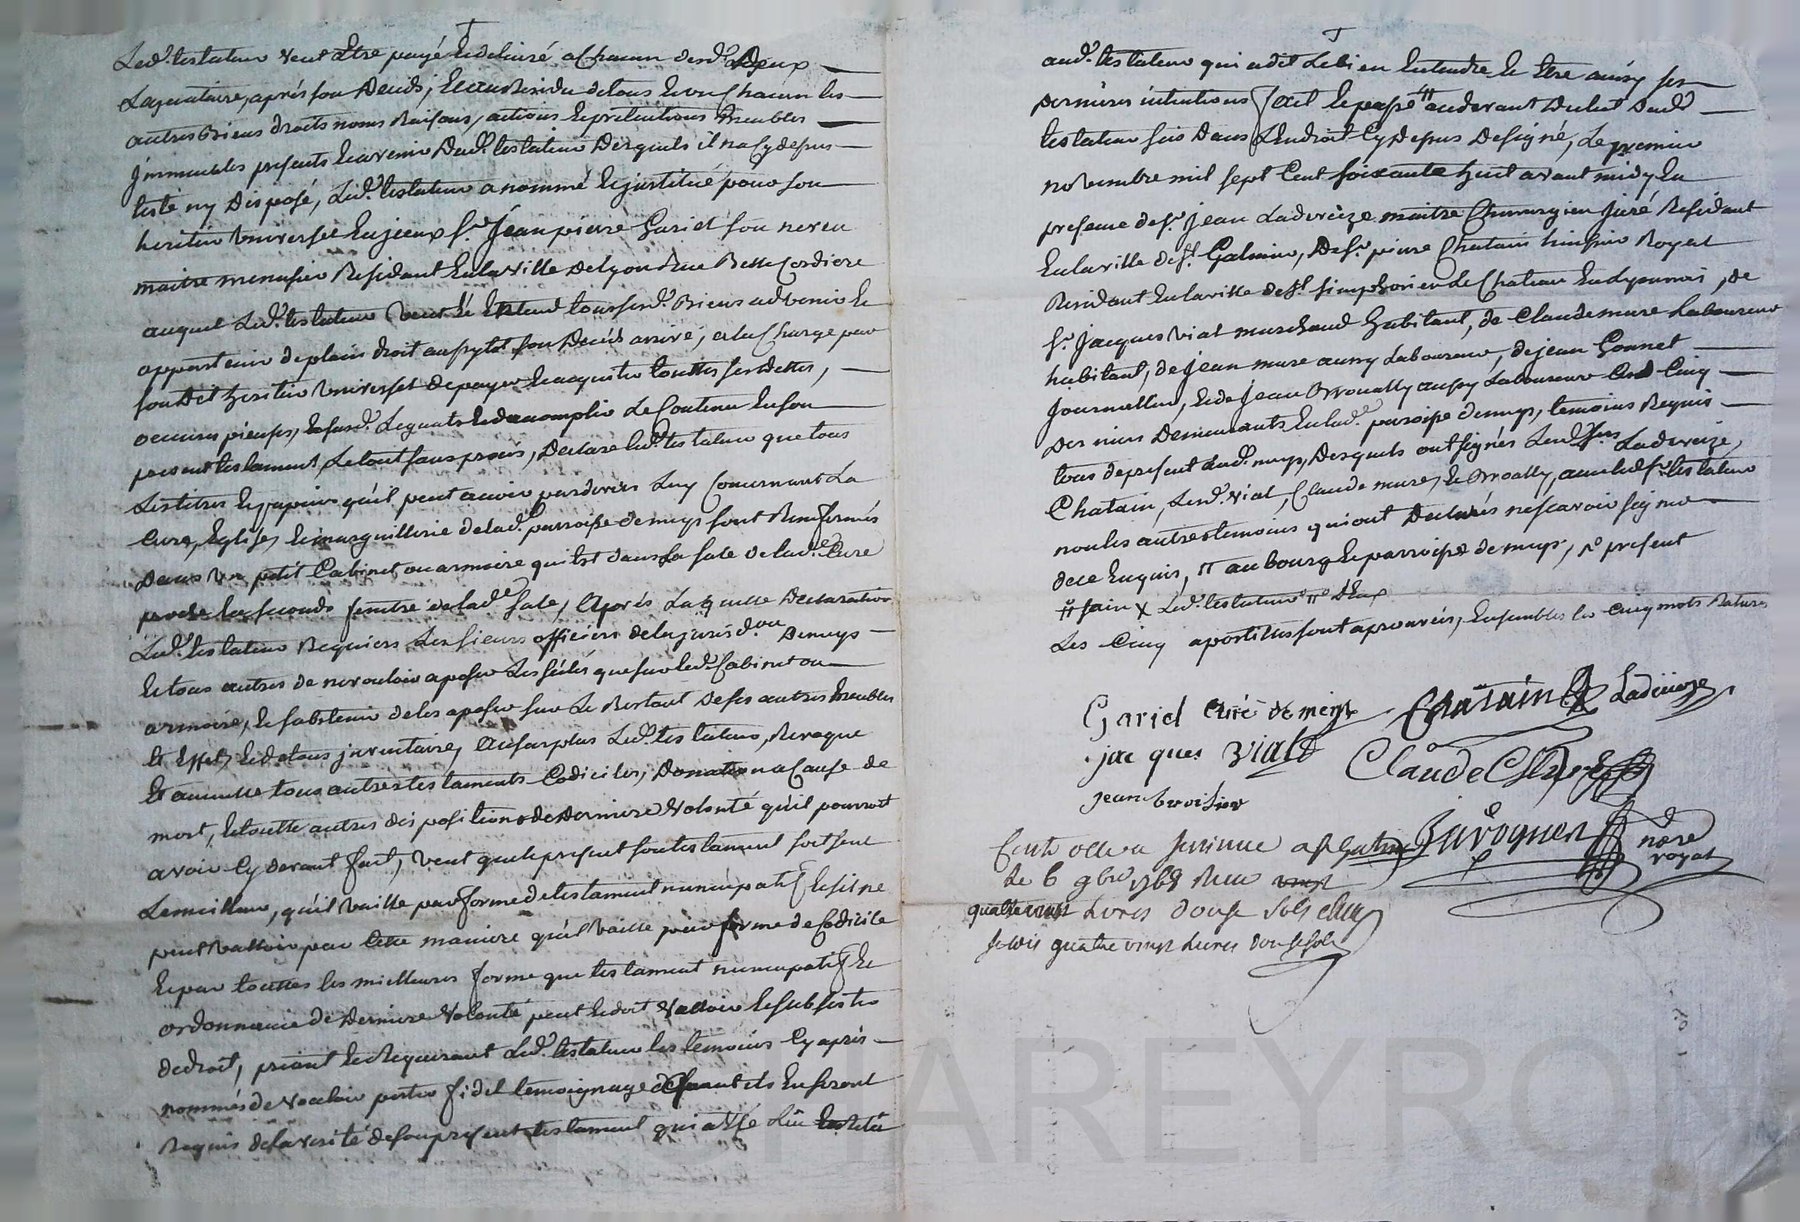 Led.t testateur veut Etre payé Et delivré a Chacun desd.s deux
Legataire, apres son Deceds, Et au Residu de tous Et un Chacun les
autres Biens droits noms Raisons, actions Et pretentions meubles
jmmeubles presents Et avenir Dud.t testateur Desquels il na Cy depus
testé ny Disposé, Led.t testateur a nommé Et jnstitué pour son
heritier Universel Sr. Jean pierre Gariel son neveu
maitre menusier Residant En la ville de lyon Rue Belle Cordiere
auquel Led.t testateur Veut Et Entend tous sesd.s Biens advenir Et
appartenir de plain droit aussytot son Deceds arrivé, a la Charge par
son Dit heritier Universel de payer Et acquitter touttes ses dettes,
oeuvres pieuses, Et sesd.s Legats Et daccomplir Le Contenu En son
present testament, Le tout sans procès, Declare Led.t testateur que tous
Les titres Et papiers qu'il peut avoir pardevers Luy Concernant La
Cure, Eglise, Et marguillerie de lad.e parroisse de meys sont Renfermés
Dans un petit Cabinet ou armoire qui Est dans La sale de lad.e Cure
proche la seconde fenetre de lad.e sale, Après Laquelle Declaration
Led.t testateur Requiers Les sieurs officiers de la jurisd.on De meys
Et tous autres de ne vouloir aposer Les scélés que sur led.t Cabinet ou
armoire, Et sabstenir de les aposer sur Le Restant De ses autres meubles
Et Effets, Et de tous jnventaire, Au surplus Led.t testateur, Revoque
Et annulle tous autres testaments Codiciles, Donation a Cause de
mort, Et toutte autres dispositions de Derniere Volonté qu'il pourroit
avoir Cy devant fait, veut que le present son testament soit seul
Le meilleur, qu'il Vaille par forme de testament nuncupatif Et sil ne
peut Valloir par Cette maniere qu'il Vaille par forme de Codicile
Et par touttes les meilleures forme que testament nuncupatif Et
ordonnance de Derniere Volonté peut Et doit Valloir Et subsister
de droit, priant Et Requerant Led.t testateur les temoins Cy après
nommés de Vouloir porter fidel temoignage quand ils En seront
Requis de la verité de son present testament qui a Eté Lû
aud.t testateur qui a dit Le bien Entendre Et Etre aussy ses
Dernieres intentions fait Et passé # audevant Du Lit Dud.t
testateur sis Dans L'Endroit Cy depus Designé, Le premier
novembre mil sept Cent soixante huit avant midy En
presence de Sr. Jean Ladeveize maitre Chirurgien Juré Residant
En la ville de St. Galmier, De Sr. pierre Chatain huissier Royal
Residant En la ville de St. simphorien le Chateau En Lyonnois, de
Sr. Jacques Vial marchand habitant, de Claude mure Laboureur
habitant, de Jean mure aussy Laboureur, de jean Gonnet
Journallier, Et de Jean aussy Laboureur Ces Cinq
Derniers Demeurants En lad.e paroisse de meys, temoins Requis
tous de present aud.t meys, Desquels ont signés Lesd.s Srs Ladeveize,
Chatain, Lesd.s Vial, Claude mure, Et avec led.t Sr. testateur
non les autres temoins qui ont Declarés ne scavoir signer
de ce Enquis, # au bourg Et parroisse de meys, present
# sain X Led.t testateur # Deux
Les Cinq apostilles sont aprouvéés, Ensembles les Cinq mots Raturés
Gariel curé de meys Chatain Ladeveze
jacques viald Claude Mure
jean
Javogues nore royal
Controllé a
Le 6 9bre 1768 Recu
quatrevingt Livres douze sols
quatre vingt Livres douse sols
CHAREYRON